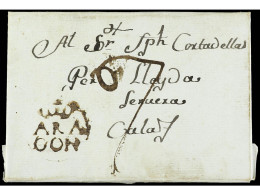 Al Sr. Jph Cortadellas
Per Lleyda
Servera
Calaf
ARA
GON